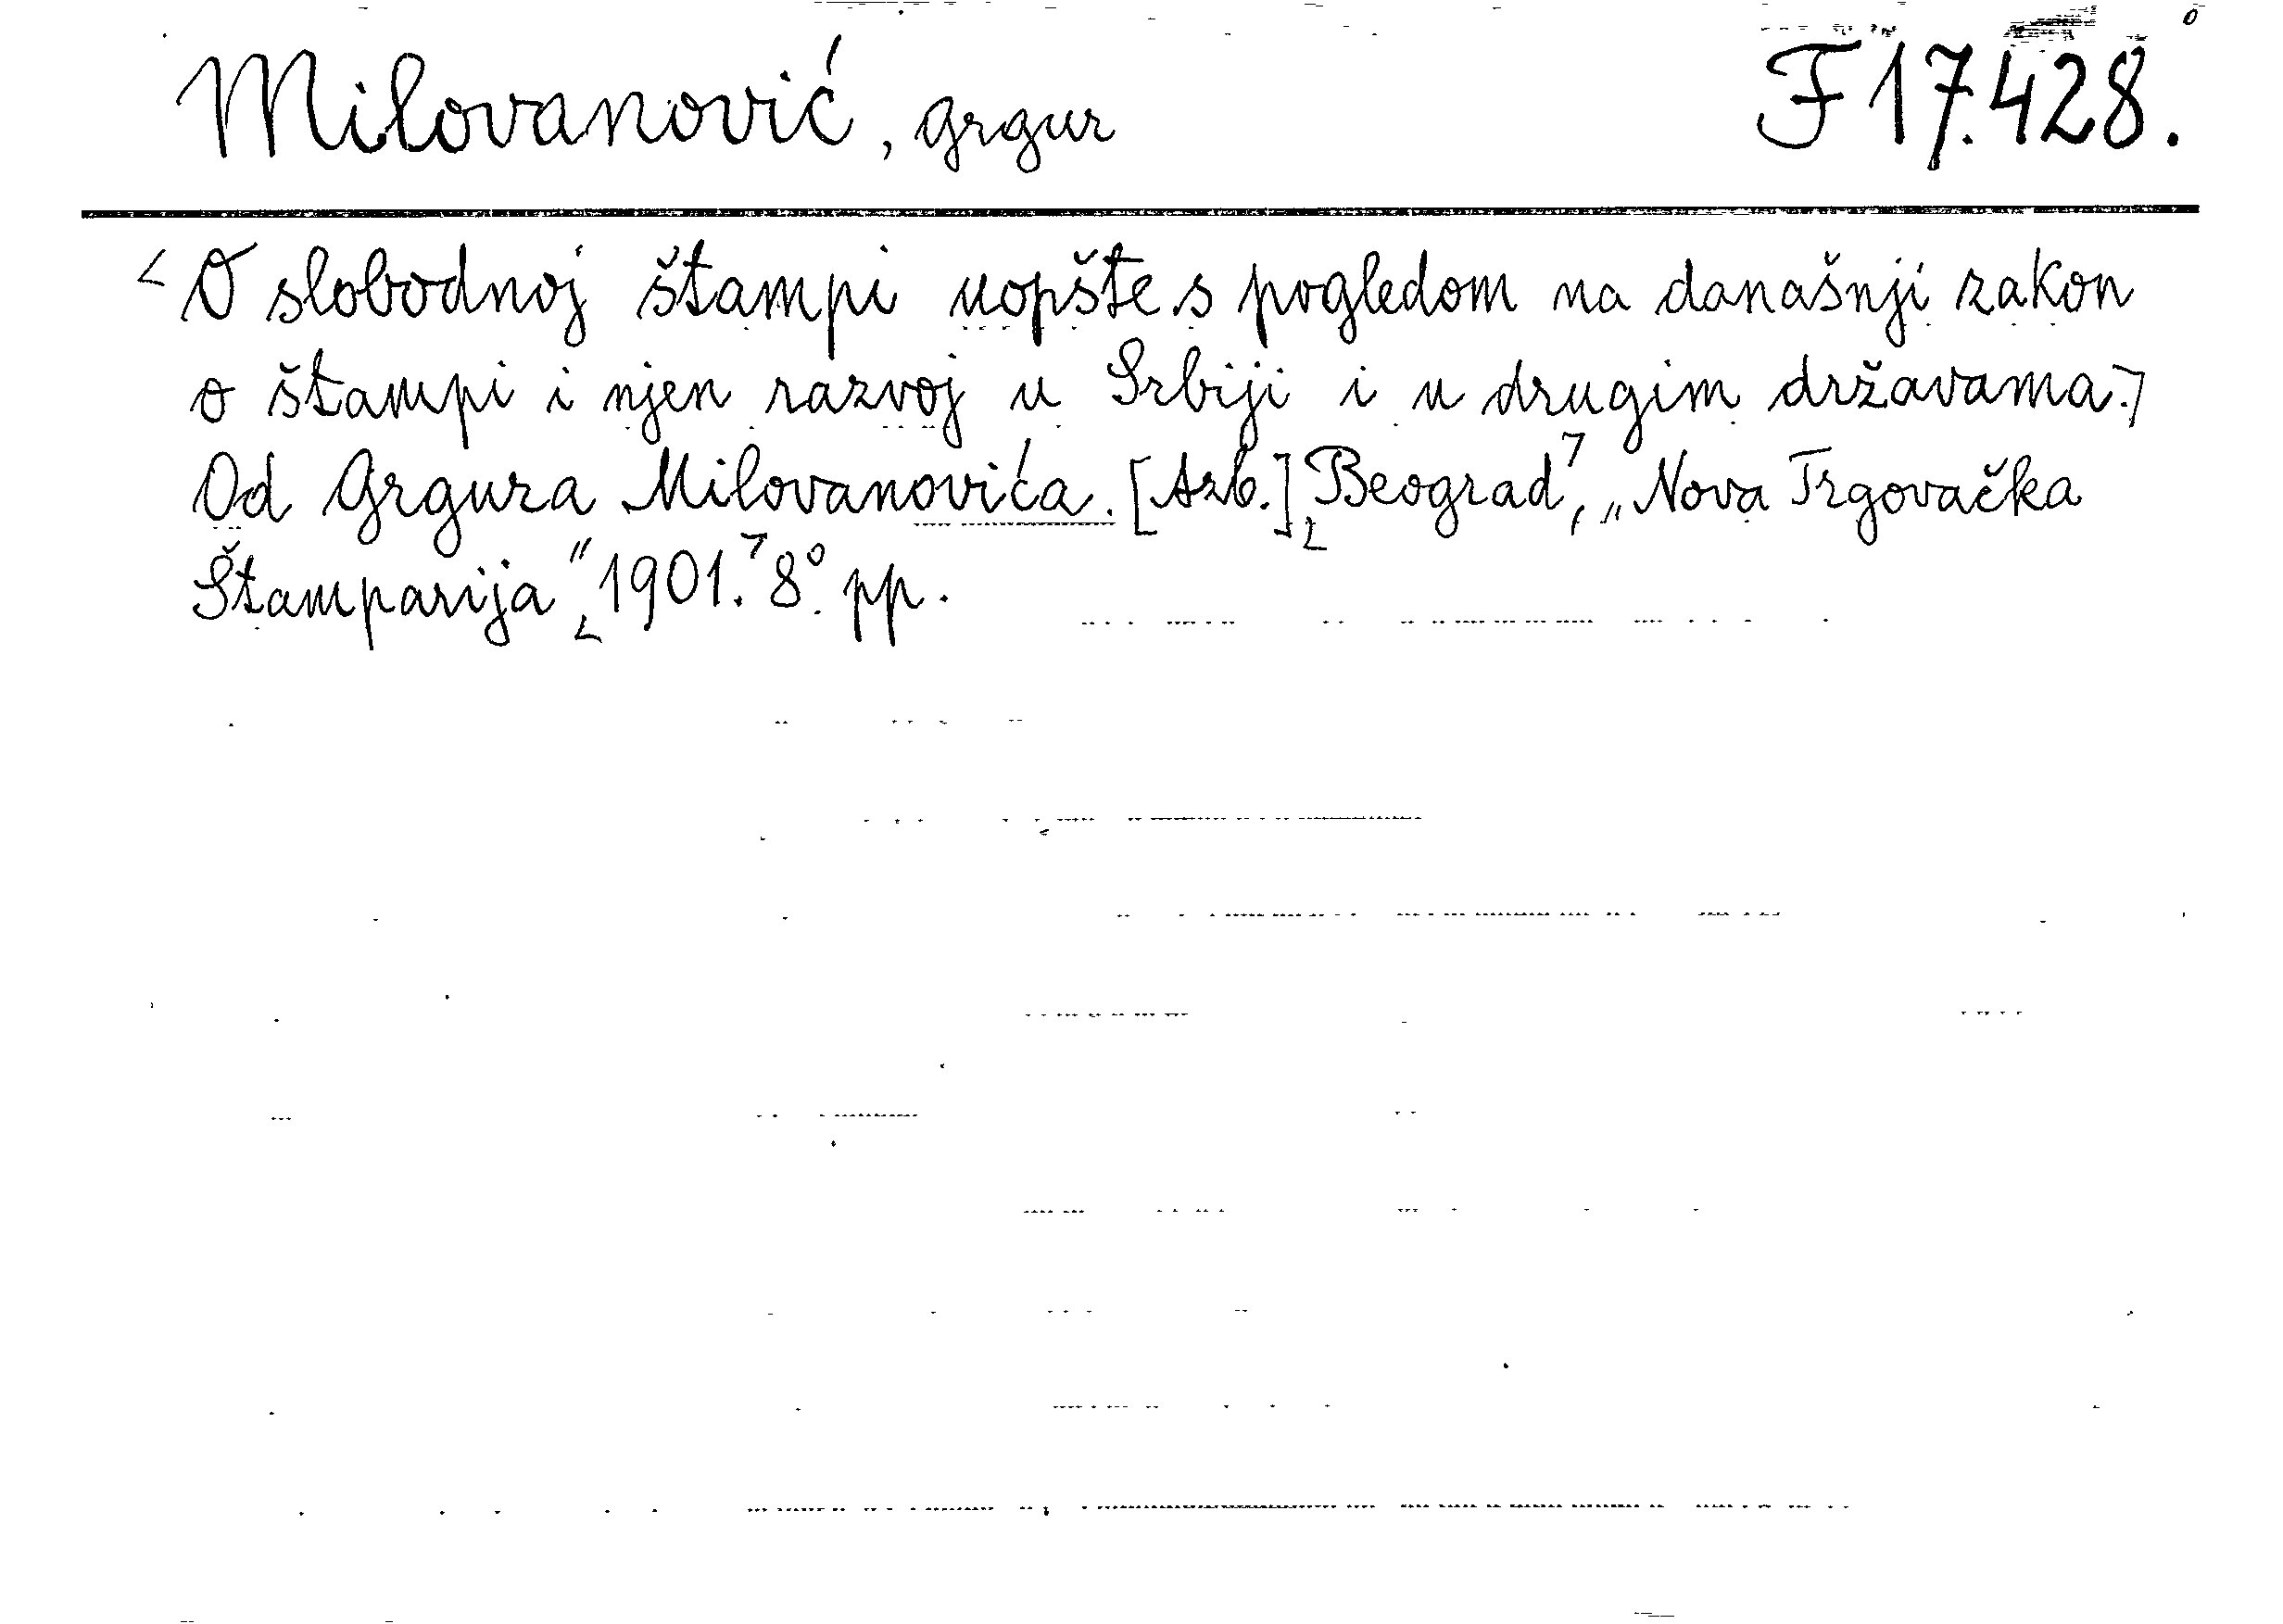 Milovanović, Grgur F 17.428.
<O slobodnoj štampi uopšte s pogledom na današnji zakon
o štampi i njen razvoj u Srbiji i u drugim državama.>
Od Grgura Milovanovića. [Azb.] <Beograd>, „Nova Trgovačka
Štamparija" <1901.> 8° pp.